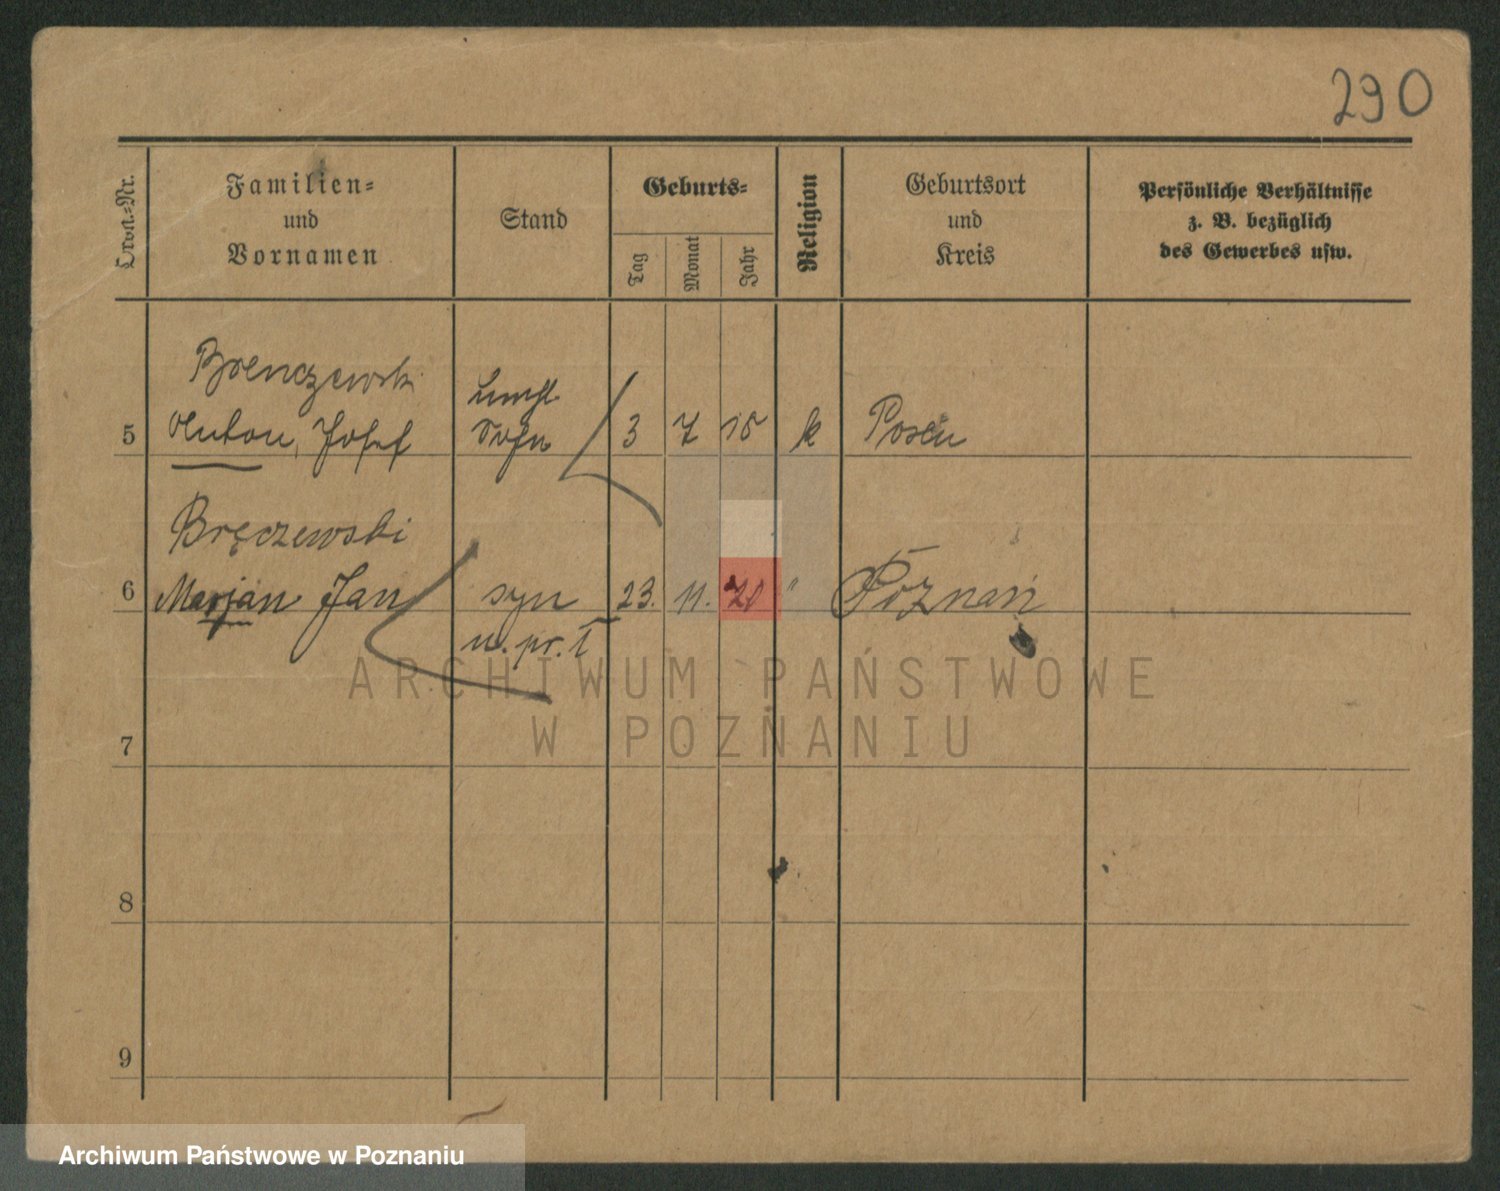 290
Ordn.-Nr.
Familien-
und
Vornamen
Stand
Geburts-
Tag
Monat
Jahr
Religion
Geburtsort
und
Kreis
Persönliche Verhältnisse
z. B. bezüglich
des Gewerbes usw.
Brenczewski
5 Anton, Josef Sohn 3 7 15 k Posen
Bręczewski
6 Marjan Jan syn 23. 11. 20 " Poznań
n. pr. I
ARCHIWUM PAŃSTWOWE
W POZNANIU
7
8
9
Archiwum Państwowe w Poznaniu